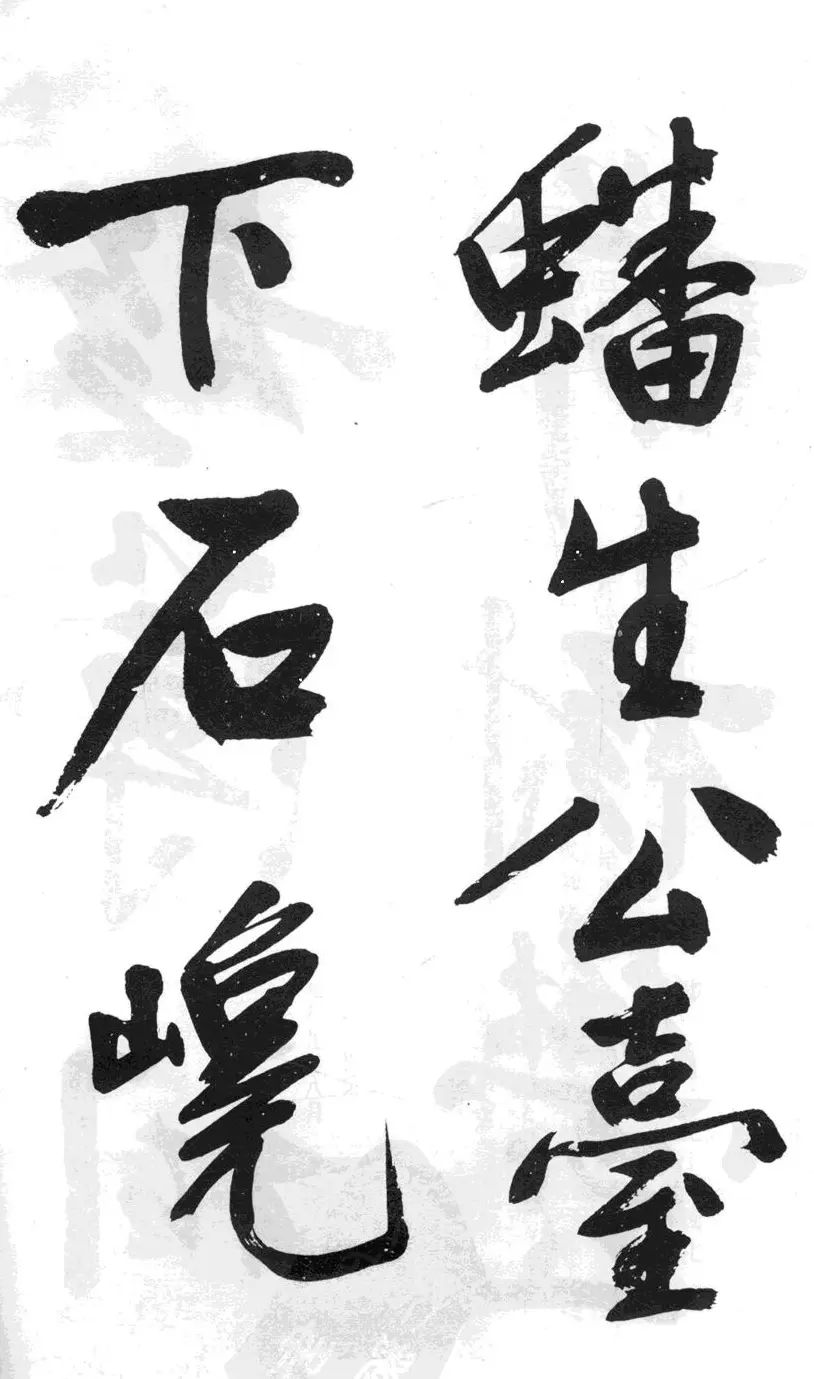 蟠生公臺
下石